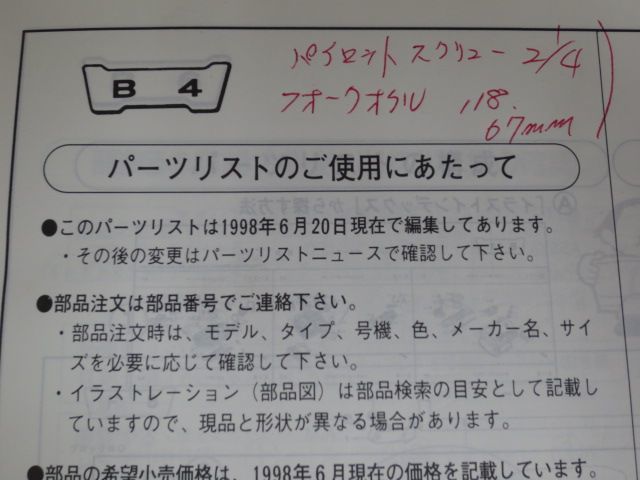 B 4
パイロットスクリュー 2 1/4
フォークオイル 118.
67mm
パーツリストのご使用にあたって
●このパーツリストは1998年6月20日現在で編集してあります。
・その後の変更はパーツリストニュースで確認して下さい。
●部品注文は部品番号でご連絡下さい。
・部品注文時は、モデル、タイプ、号機、色、メーカー名、サイ
ズを必要に応じて確認して下さい。
・イラストレーション（部品図）は部品検索の目安として記載し
ていますので、現品と形状が異なる場合があります。
●部品の希望小売価格は、1998年6月現在の価格を記載しています。